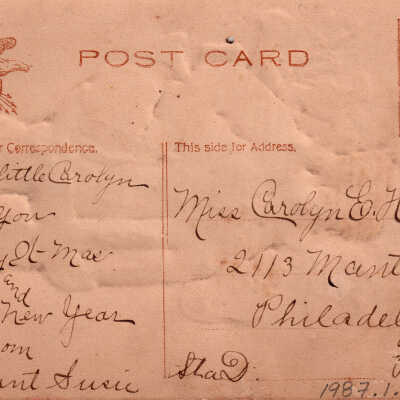 POST CARD
r Correspondence.
little Carolyn
You
y & Mae
and
New Year
om
unt Susie
This side for Address.
Miss Carolyn E. H
2113 Mant
Philadel
Sta D.
1987.1.